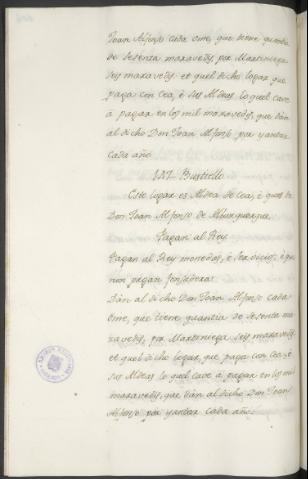 Joan Alfonso cada ome, que tiene quantia
de sesenta maravedis, por Martiniega
seys maravedis et quel dicho logar que
paga con cea, e ses Aldeas lo quel cave
a pagar en los mil maravedis, que dan
al dicho Don Joan Alfonso por yantar
cada año
Bustiello
Este logar es Aldea de cea, e que es de
Don Joan Alfonso de Alburquerque.
Pagan al Rey
Pagan al Rey monedas, e servicios, e que
non pagan fonsadera:
Dan al dicho Don Joan Alfonso cada
ome, que tiene quantia de sesenta ma
ravedis, por Martiniega seys maravedis
et quel dicho logar, que paga con cea, e
ses Aldeas lo quel cave a pagar en los mil
maravedis, que dan al dicho Don Joan
Alfonso por yantar cada año.